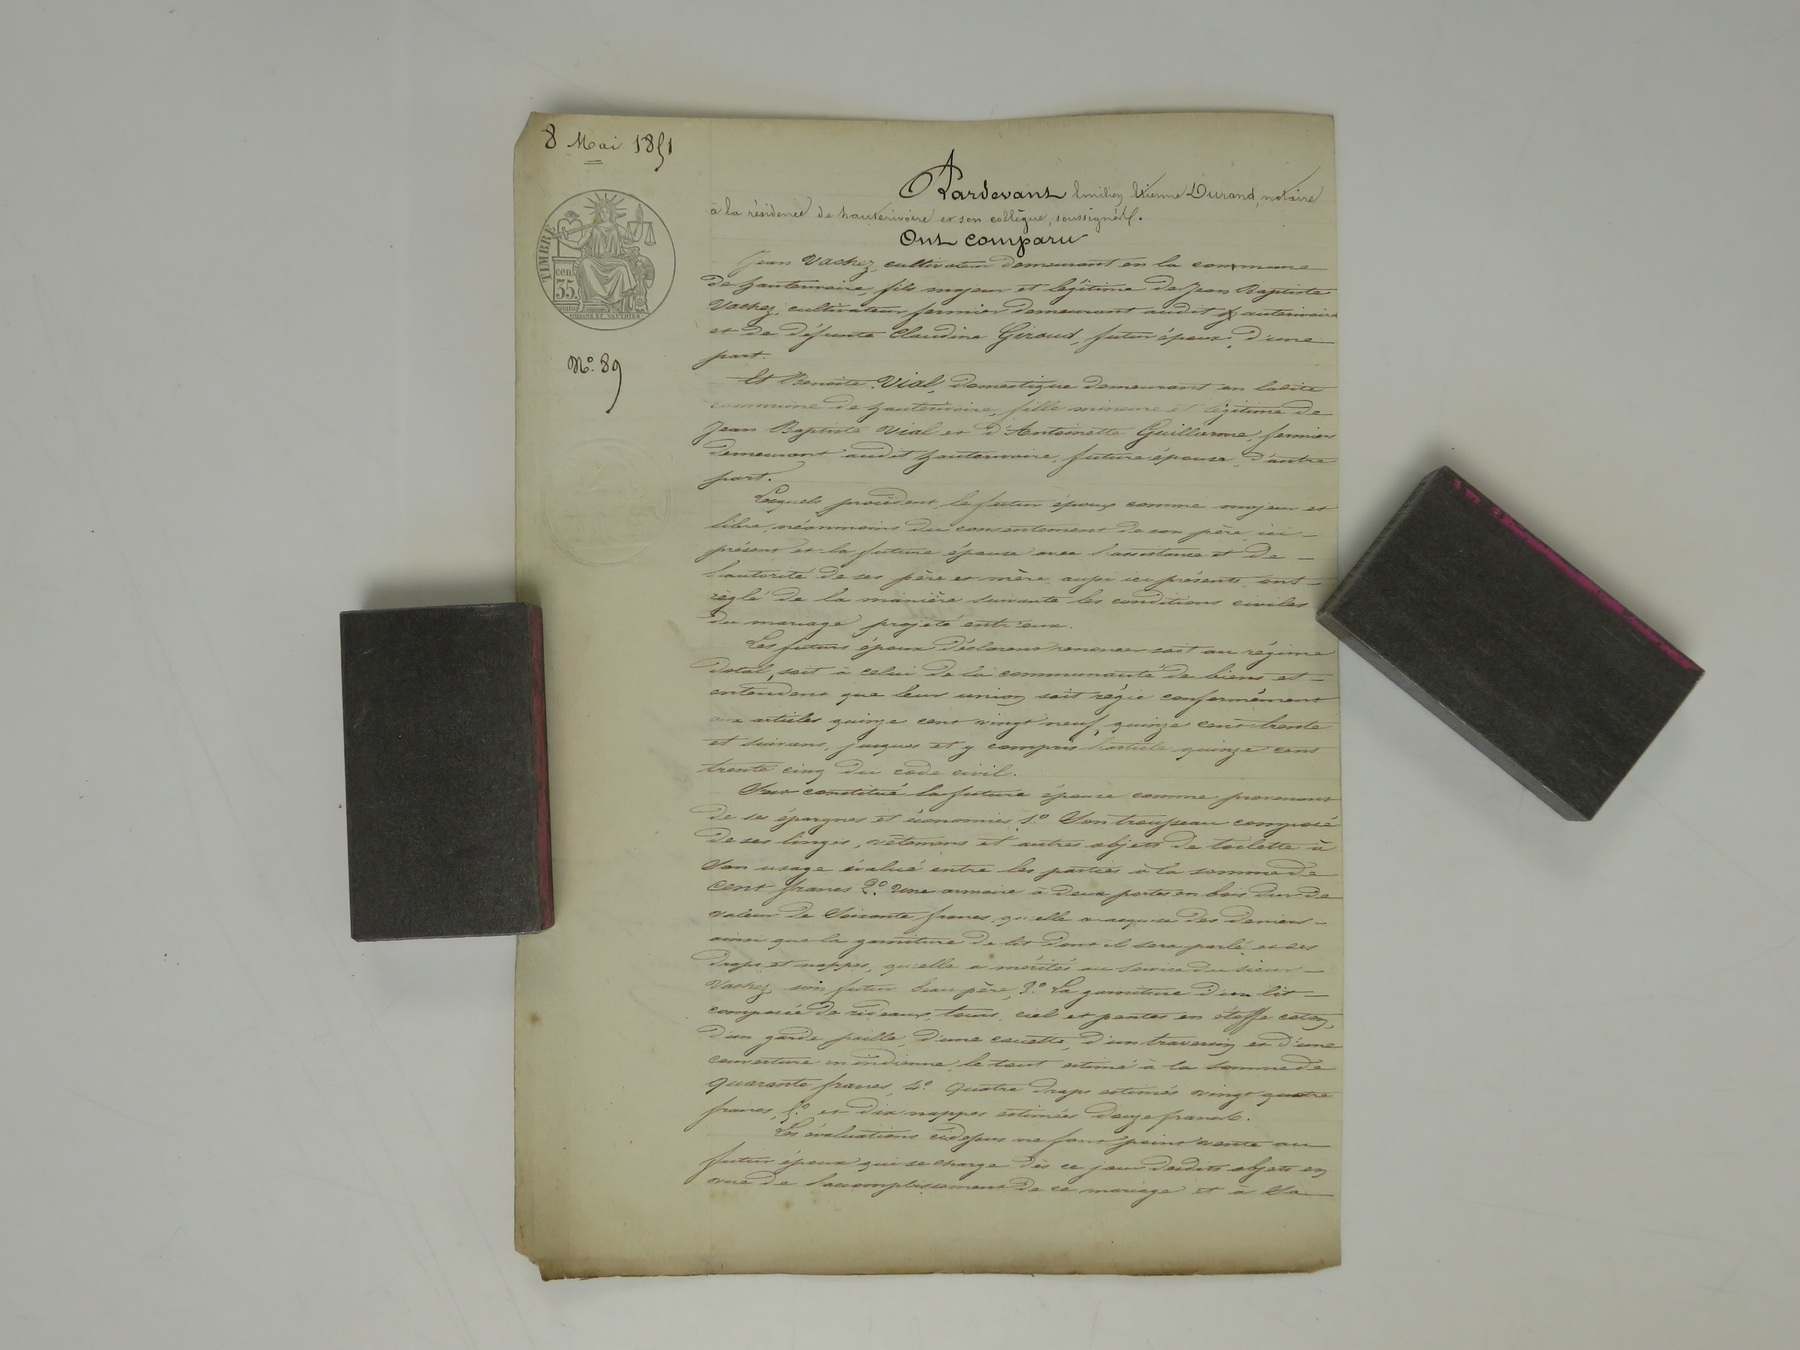 8 Mai 1851
TIMBRE
cen
35.
Nº. 89
Pardevant Emilien Etienne Durand, notaire
à la résidence de hauterivoire et son collègue, soussignés.
Ont comparu
Jean Vachez, cultivateur demeurant en la commune
de hauterivoire, fils majeur et légitime de Jean Baptiste
Vachez, cultivateur fermier demeurant audit hauterivoire
et de défunte Claudine Giroud, futur époux, d'une
part.
Et Benoite Vial, domestique demeurant en ladite
commune de hauterivoire, fille mineure et légitime de
Jean Baptiste Vial et d'Antoinette Guillarme, fermiers
demeurant audit hauterivoire, future épouse, d'autre
part.
Lesquels procèdent, le futur époux comme majeur et
libre, néonmoins du consentement de son père ici
présent et la future épouse avec l'assistance et de
l'autorité de ses père et mère, aussi ici présents, ont
réglé de la manière suivante les conditions civiles
du mariage projeté entr'eux.
Les futurs époux déclarent renoncer soit au régime
dotal, soit à celui de la communauté de biens et
entendent que leur union soit régie conformément
aux articles quinze cent vingt neuf, quinze cent trente
et suivans, jusques et y compris l'article quinze cent
trente cinq du code civil.
S'est constitué la future épouse comme provenant
de ses épargnes et économies 1.º Son trousseau composé
de ses linges, vêtemens et autres objets de toilette à
son usage évalué entre les parties à la somme de
cent francs 2.º Une armoire à deux portes en bois dur de
valeur de Soixante francs, qu'elle a acquise des deniers
ainsi que la garniture de lit dont il sera parlé et ses
draps et nappes, qu'elle a mérités au service du sieur
Vachez, son futur beau père, 3.º La garniture d'un lit
composée de rideaux, tours, ciel et pantes en étoffe coton,
d'un garde paille, d'une couette, d'un traversin et d'une
couverture en indienne, le tout estimé à la somme de
quarante francs, 4.º Quatre draps estimés vingt quatre
francs, 5.º et dix nappes estimées douze francs.
Les évaluations cidessus ne font point vente au
futur époux qui se charge dès ce jour desdits objets en
vue de l'accomplissement de ce mariage et à Sa